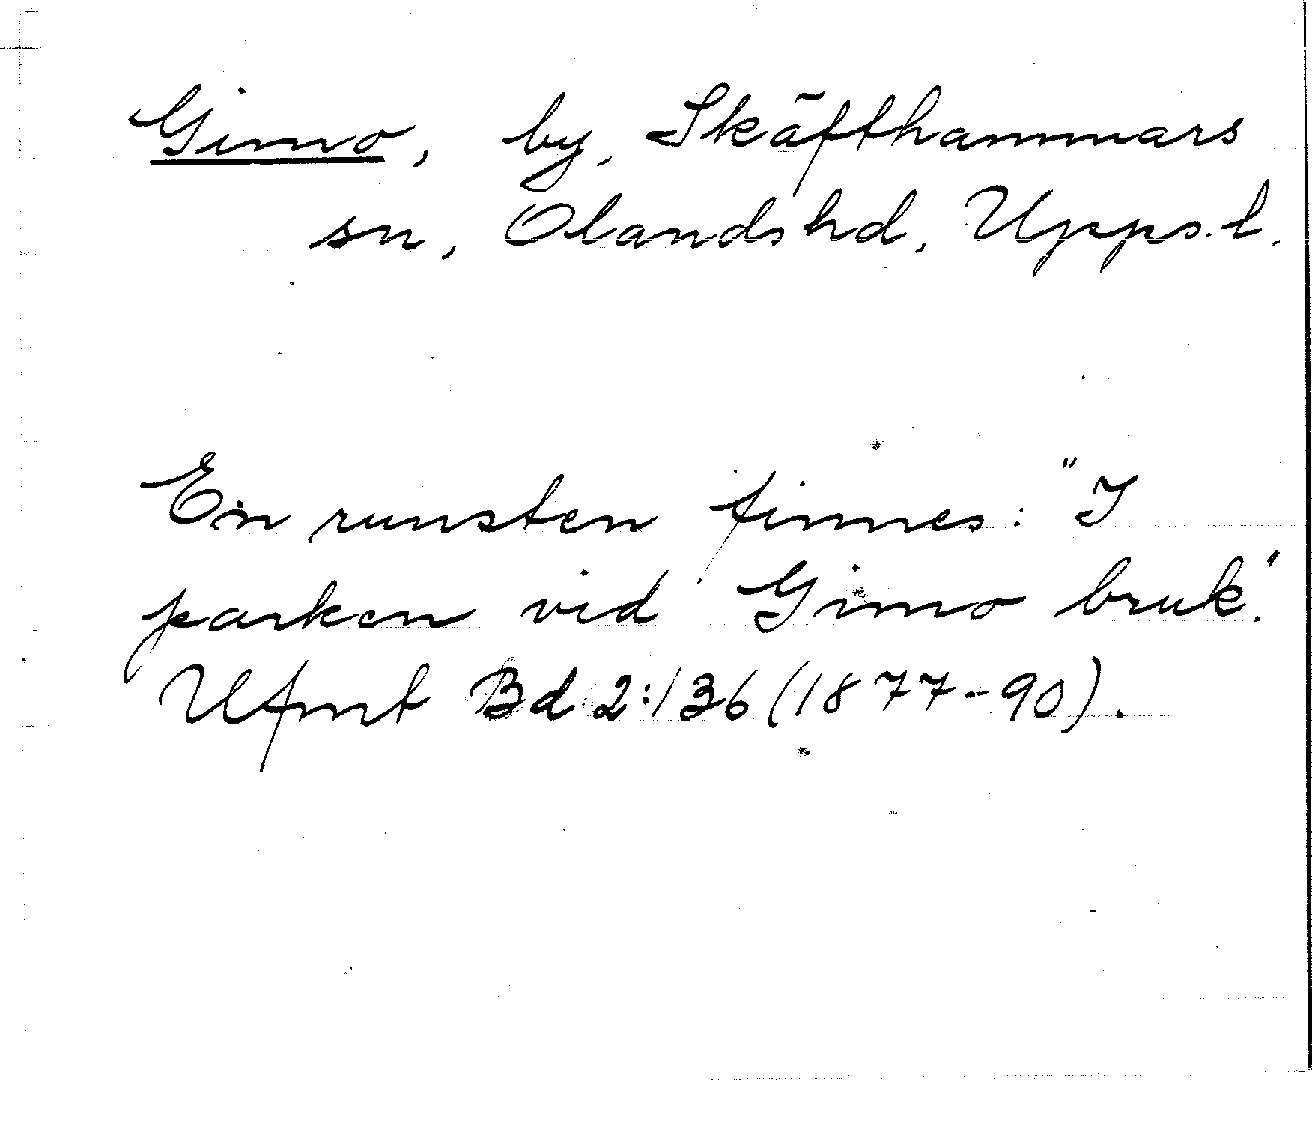 Gimo, by, Skäfthammars
sn, Olands hd, Upps. l.
En runsten finnes: "I
parken vid Gimo bruk."
Ufmt Bd 2:136 (1877-90).